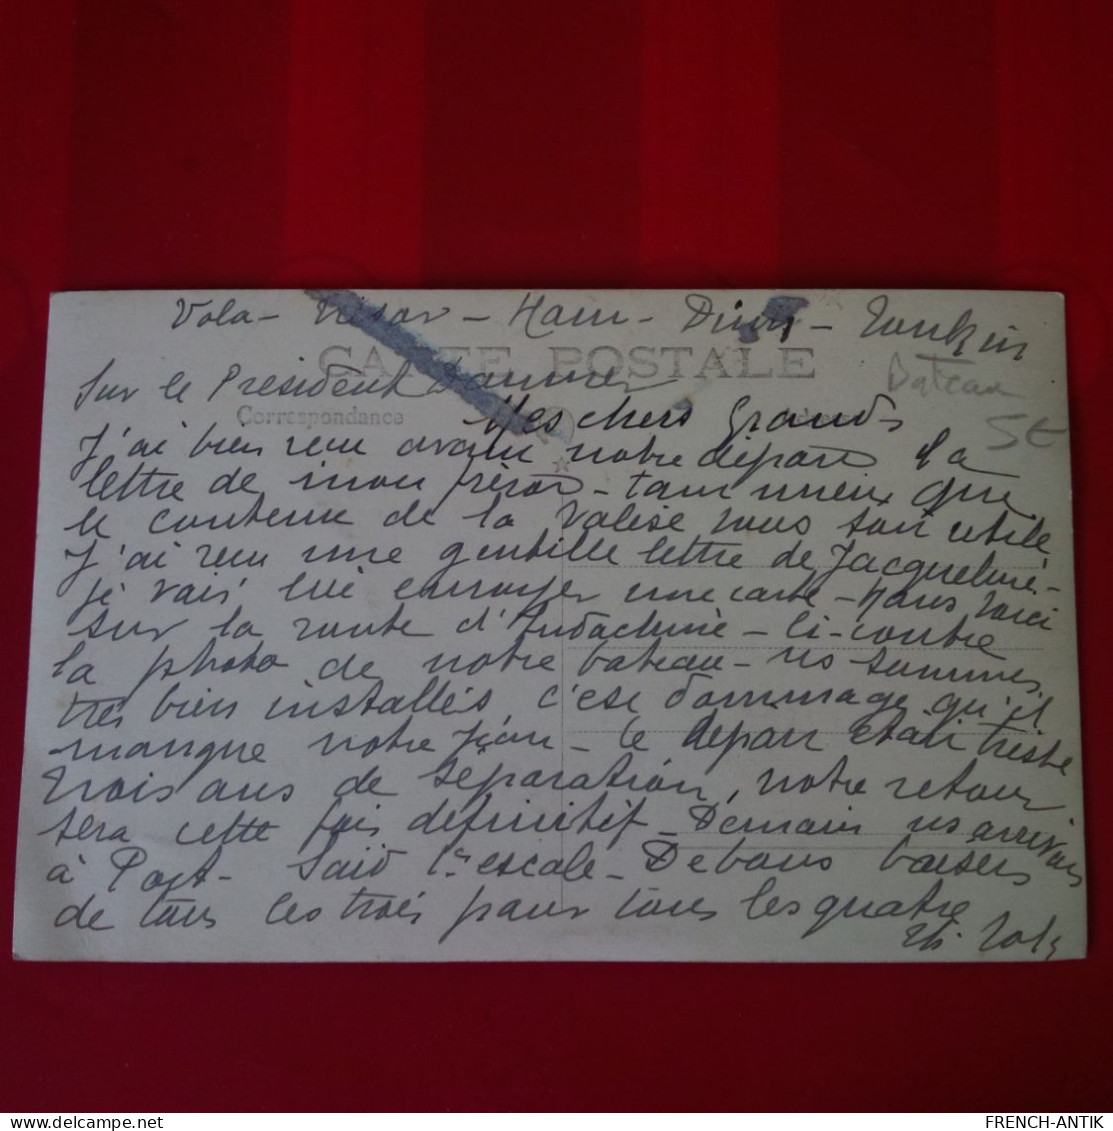 Vola - Trésor - Nam - Dinh - Tonkin
CARTE POSTALE
Bateau
Sur le Président Doumer
5€
Correspondance
Mes chers Grands
J'ai bien reçu avant notre départ la
lettre de mon - tant mieux que
le contenu de la valise vous soit utile
J'ai reçu une gentille lettre de Jacqueline -
je vais lui envoyer une carte - Nous voici
sur la route d'Indochine - Ci-contre
la photo de notre bateau - ns sommes
très bien installés, c'est dommage qu'il
manque notre Jean - le départ était triste
trois ans de séparation, notre retour
sera cette fois définitif - Demain ns arrivons
à Port - Saïd 1re escale - De bons baisers
de tous les trois pour tous les quatre
Vola
FRENCH-ANTIK